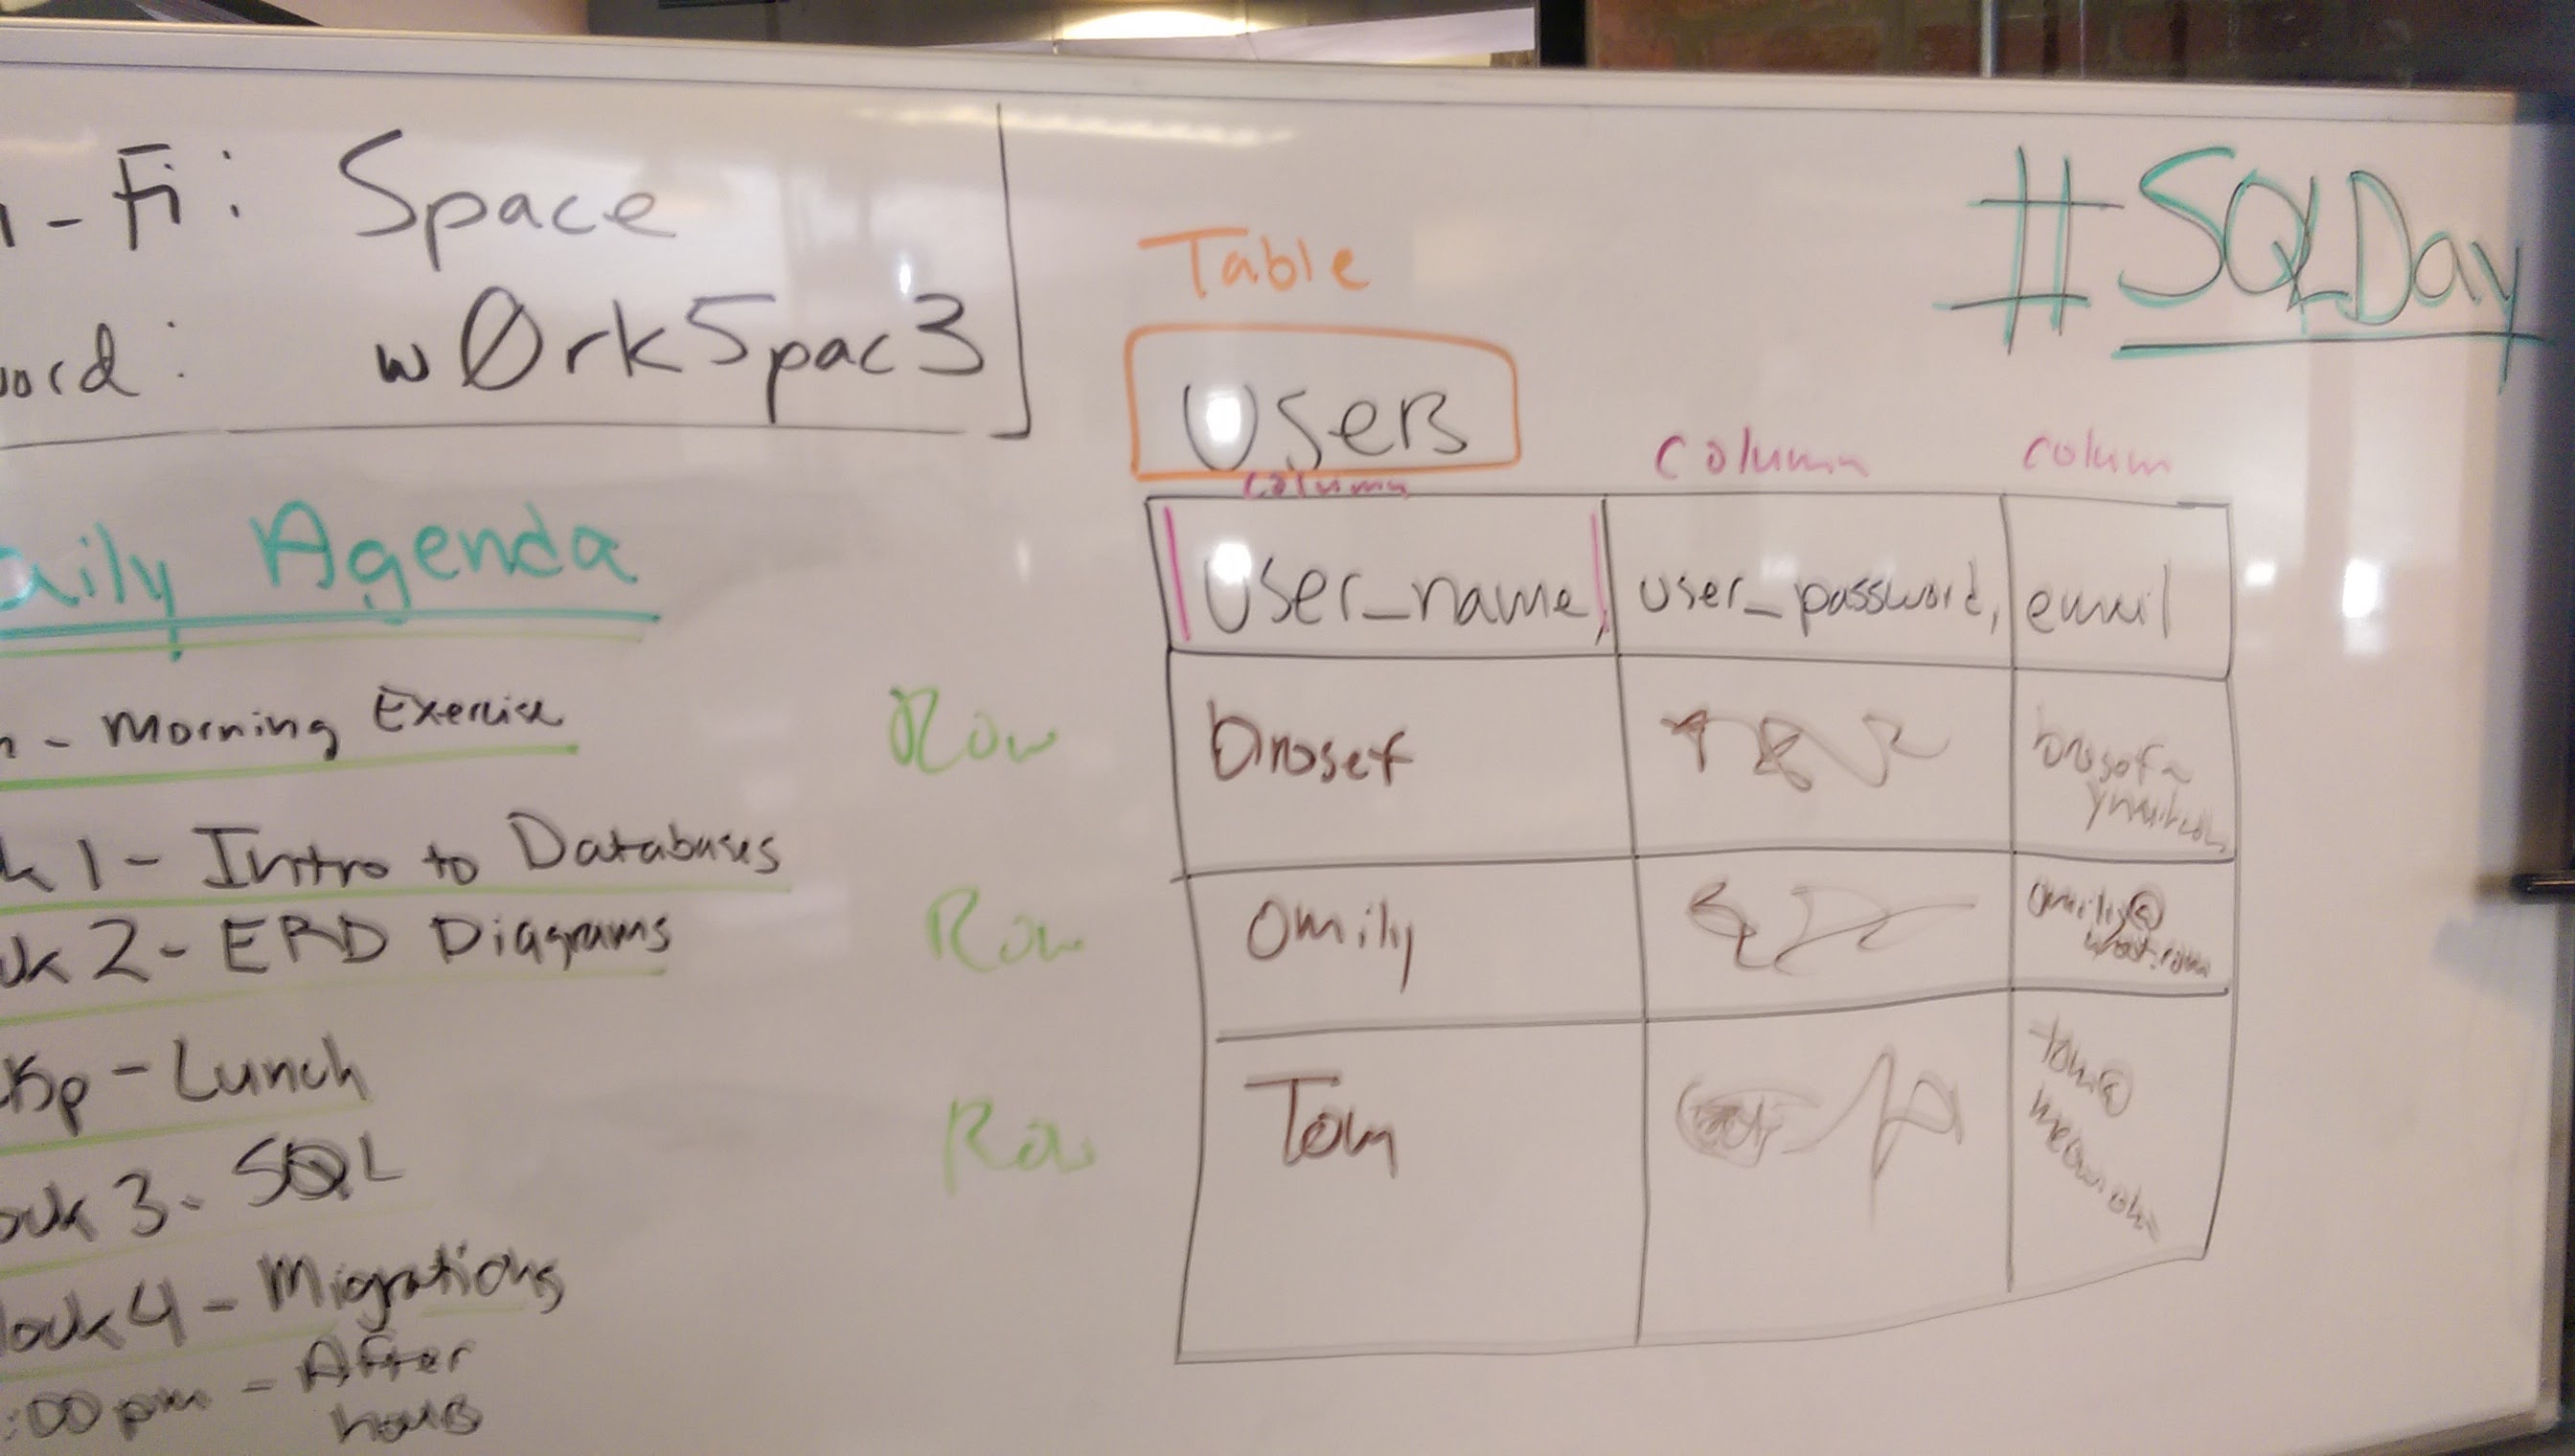 i-Fi: Space
word: wØrk5pac3
aily Agenda
- Morning Exercise
k 1 - Intro to Databases
ck 2 - ERD Diagrams
p - Lunch
ock 3 - SQL
lock 4 - Migrations
:00 pm - After
hours
#SQLDay
Table
Users
column column colum
User_name, user_password, email
Row brosef
Row Omily omily@
Row Tom tom@